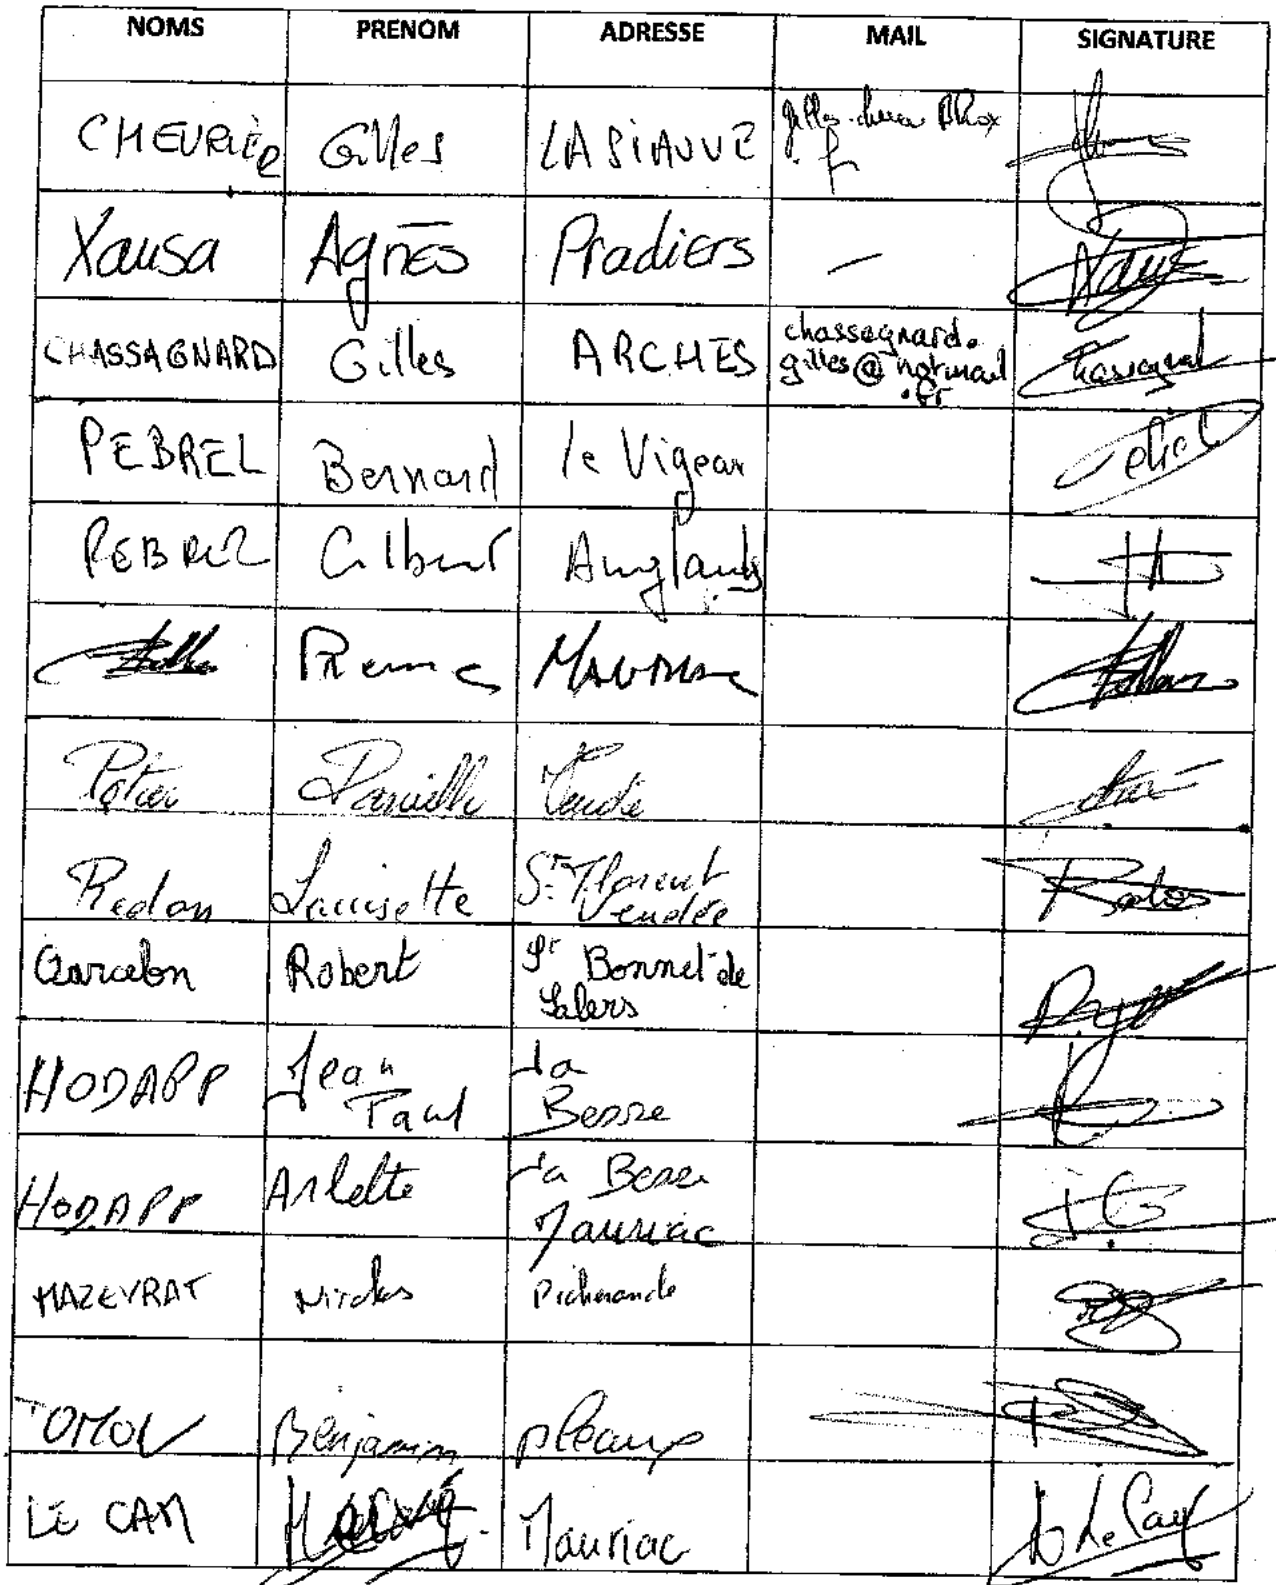 NOMS PRENOM ADRESSE MAIL SIGNATURE
CHEVRIER Gilles LASIAUVE
Xausa Agnès Pradiers —
CHASSAGNARD Gilles ARCHES chassagnard.
gilles@hotmail
.fr
PEBREL Bernard le Vigean
PEBREL Gilbert Anglards
Pierre
Potier Danielle Vendée
Redon Louisette St Florent
Vendée
Robert St Bonnet de
Salers
HODAPP Jean
Paul
La
Besse
HODAPP Arlette la Besse
Mauriac
MAZEYRAT Nicolas Picherande
Benjamin pleaux
LE CAM Mauriac